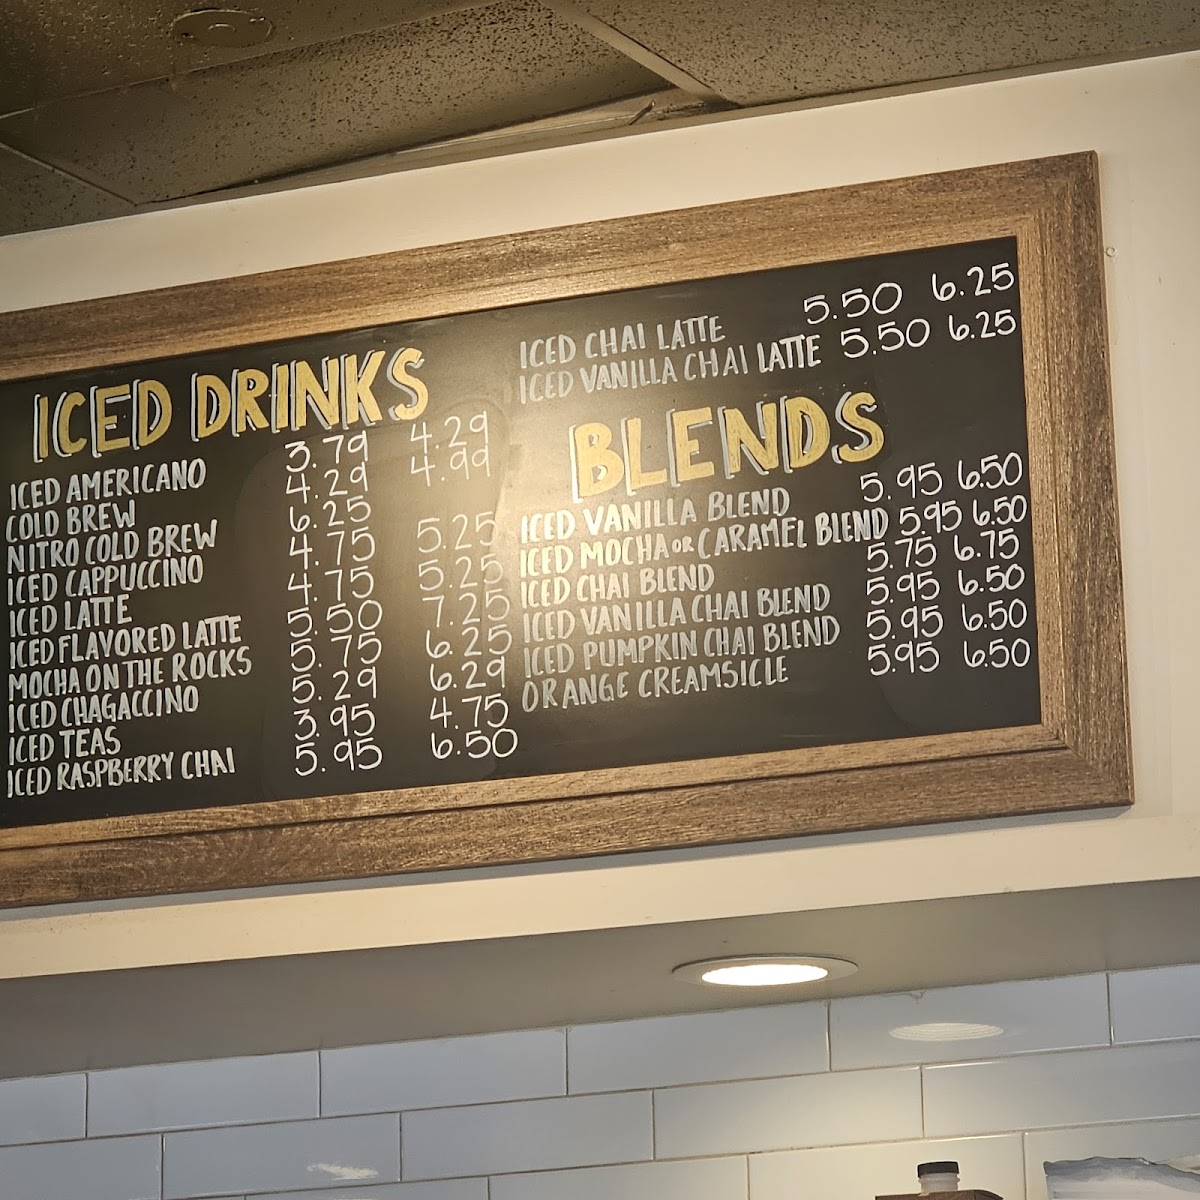 ICED DRINKS
ICED AMERICANO 3.79 4.29
COLD BREW 4.29 4.99
NITRO COLD BREW 6.25
ICED CAPPUCCINO 4.75 5.25
ICED LATTE 4.75 5.25
ICED FLAVORED LATTE 5.50 7.25
MOCHA ON THE ROCKS 5.75 6.25
ICED CHAGACCINO 5.29 6.29
ICED TEAS 3.95 4.75
ICED RASPBERRY CHAI 5.95 6.50
ICED CHAI LATTE 5.50 6.25
ICED VANILLA CHAI LATTE 5.50 6.25
BLENDS
ICED VANILLA BLEND 5.95 6.50
ICED MOCHA OR CARAMEL BLEND 5.95 6.50
ICED CHAI BLEND 5.75 6.75
ICED VANILLA CHAI BLEND 5.95 6.50
ICED PUMPKIN CHAI BLEND 5.95 6.50
ORANGE CREAMSICLE 5.95 6.50